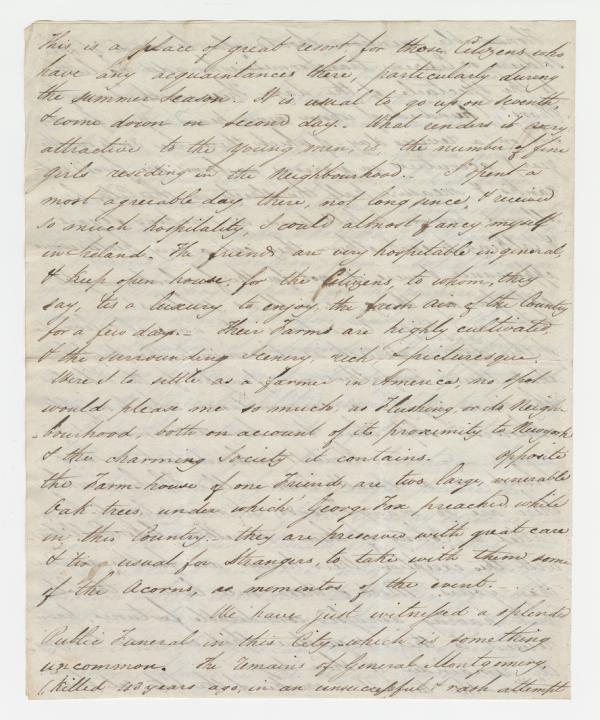 This is a place of great resort for those Citizens who
have any acquaintances there, particularly during
the summer season. It is usual to go up on seventh,
& come down on second day. What renders it very
attractive to the young men, is the number of fine
girls residing in the Neighbourhood. I spent a
most agreeable day there, not long since, & received
so much hospitality, I could almost fancy myself
in Ireland. The friends are very hospitable in general,
& keep open house, for the Citizens, to whom, they
say, tis a luxury to enjoy the fresh air of the Country
for a few days. Their Farms are highly cultivated,
& the surrounding Scenery, rich, & picturesque.
Were I to settle as a farmer in America, no spot
would please me so much, as Flushing, or its Neigh-
-bourhood, both on account of its proximity to Newyork
& the charming Society it contains. Opposite
the Farm-house of one Friend, are two large, venerable
Oak trees, under which George Fox preached while
in this Country - they are preserved with great care
& tis usual for Strangers, to take with them some
of the Acorns, as momentos of the event.
We have just witnessed a splendid
Public Funeral in this City, which is something
uncommon. The remains of General Montgomery,
(killed 43 years ago, in an unsuccessful & rash attempt